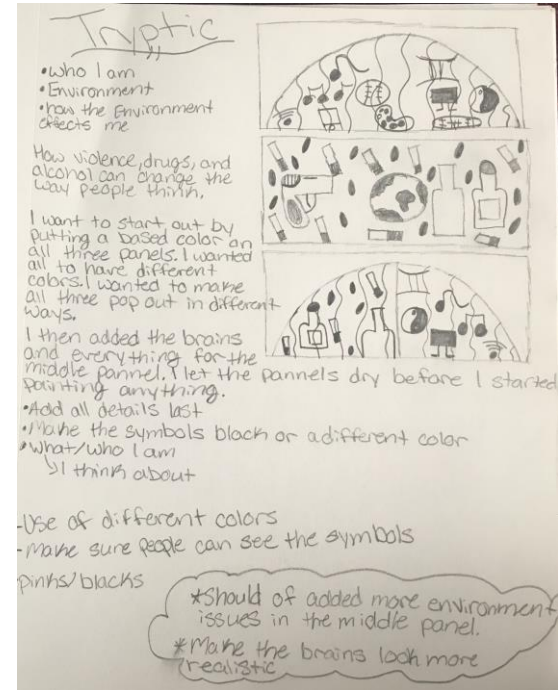 Tryptic
•who I am
•Environment
•how the Environment
effects me
How violence, drugs, and
alcohol can change the
way people think.
I want to start out by
putting a based color on
all three panels. I wanted
all to have different
colors. I wanted to make
all three pop out in different
ways.
I then added the brains
and everything for the
middle pannel. I let the pannels dry before I started
painting anything.
•Add all details last
•Make the symbols black or a different color
•What/who I am
↳I think about
-Use of different colors
-Make sure people can see the symbols
pinks/blacks
*Should of added more environment
issues in the middle panel.
*Make the brains look more
realistic